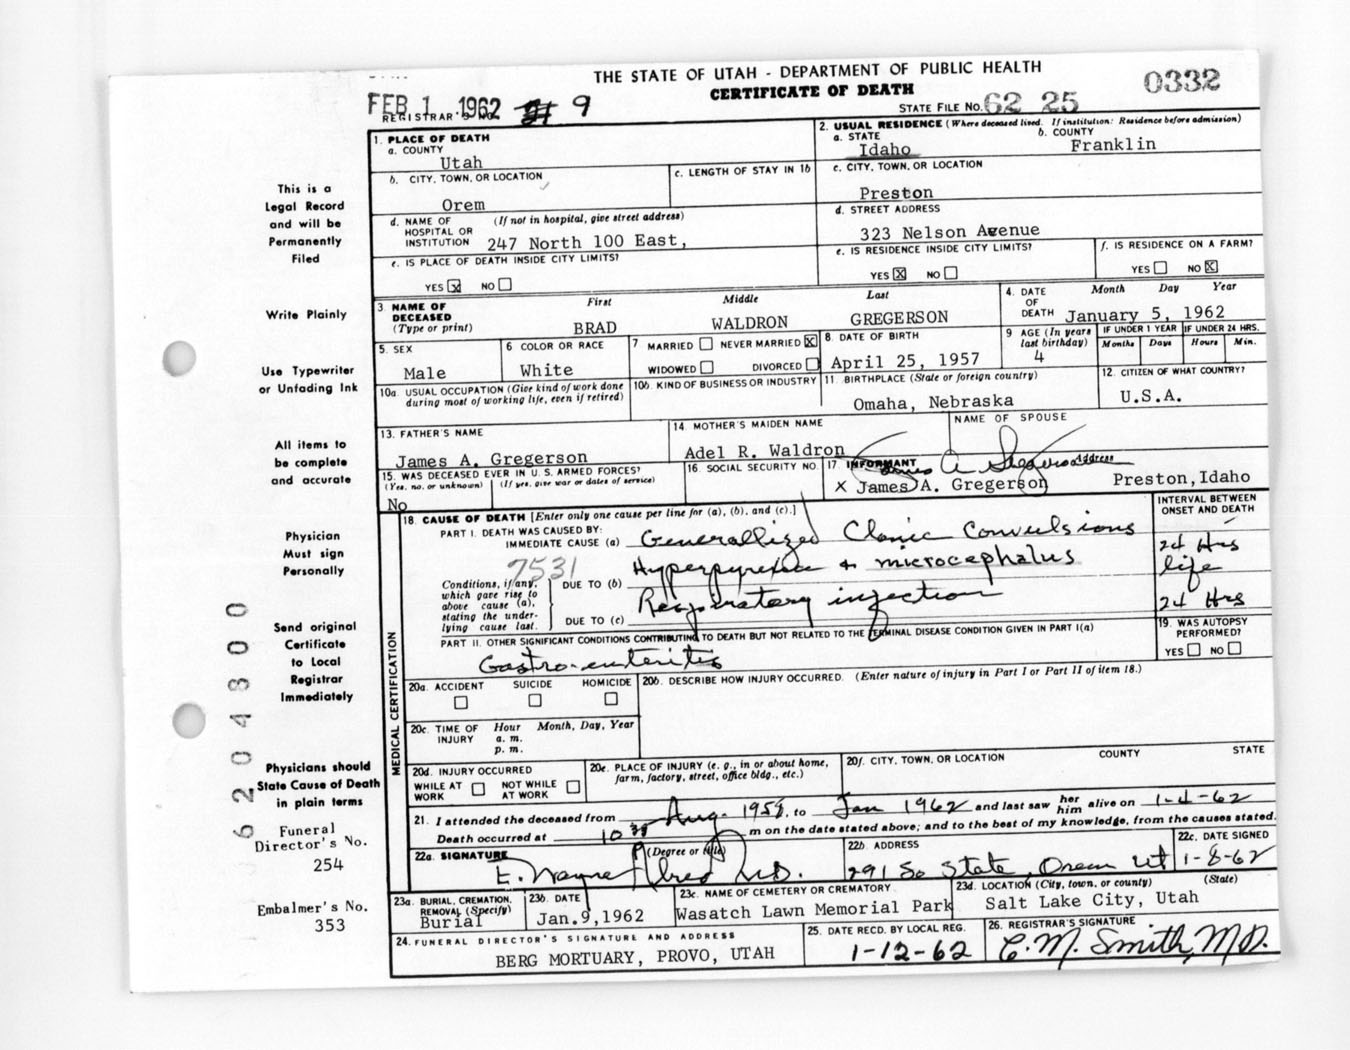 THE STATE OF UTAH - DEPARTMENT OF PUBLIC HEALTH
CERTIFICATE OF DEATH
0332
FEB 1 1962 9
REGISTRAR'S NO.
STATE FILE NO. 62 25
1. PLACE OF DEATH
a. COUNTY
Utah
2. USUAL RESIDENCE (Where deceased lived. If institution: Residence before admission)
a. STATE
Idaho
b. COUNTY
Franklin
b. CITY, TOWN, OR LOCATION
Orem
c. LENGTH OF STAY IN 1b
c. CITY, TOWN, OR LOCATION
Preston
d. NAME OF HOSPITAL OR INSTITUTION
(If not in hospital, give street address)
247 North 100 East,
d. STREET ADDRESS
323 Nelson Avenue
e. IS PLACE OF DEATH INSIDE CITY LIMITS?
YES ☒ NO ☐
e. IS RESIDENCE INSIDE CITY LIMITS?
YES ☒ NO ☐
f. IS RESIDENCE ON A FARM?
YES ☐ NO ☒
3. NAME OF DECEASED (Type or print)
First Middle Last
BRAD WALDRON GREGERSON
4. DATE OF DEATH
Month Day Year
January 5, 1962
5. SEX
Male
6 COLOR OR RACE
White
7 MARRIED ☐ NEVER MARRIED ☒
WIDOWED ☐ DIVORCED ☐
8. DATE OF BIRTH
April 25, 1957
9 AGE (In years last birthday)
4
IF UNDER 1 YEAR
Months Days
IF UNDER 24 HRS.
Hours Min.
10a. USUAL OCCUPATION (Give kind of work done during most of working life, even if retired)
10b. KIND OF BUSINESS OR INDUSTRY
11. BIRTHPLACE (State or foreign country)
Omaha, Nebraska
12. CITIZEN OF WHAT COUNTRY?
U.S.A.
13. FATHER'S NAME
James A. Gregerson
14. MOTHER'S MAIDEN NAME
Adel R. Waldron
NAME OF SPOUSE
15. WAS DECEASED EVER IN U. S. ARMED FORCES?
(Yes, no, or unknown) (If yes, give war or dates of service)
No
16. SOCIAL SECURITY NO.
17. INFORMANT Address
James A. Gregerson
X James A. Gregerson Preston, Idaho
18. CAUSE OF DEATH [Enter only one cause per line for (a), (b), and (c).]
INTERVAL BETWEEN ONSET AND DEATH
PART I. DEATH WAS CAUSED BY:
IMMEDIATE CAUSE (a) Generallized Clonic Convulsions 24 Hrs
7531
Conditions, if any, which gave rise to above cause (a), stating the underlying cause last.
DUE TO (b) Hyperpyrexia + microcephalus life
DUE TO (c) Respiratory infection 24 Hrs
PART II. OTHER SIGNIFICANT CONDITIONS CONTRIBUTING TO DEATH BUT NOT RELATED TO THE TERMINAL DISEASE CONDITION GIVEN IN PART I(a)
Gastro-enteritis
19. WAS AUTOPSY PERFORMED?
YES ☐ NO ☐
MEDICAL CERTIFICATION
20a. ACCIDENT SUICIDE HOMICIDE
☐ ☐ ☐
20b. DESCRIBE HOW INJURY OCCURRED. (Enter nature of injury in Part I or Part II of item 18.)
20c. TIME OF INJURY
Hour Month, Day, Year
a. m.
p. m.
20d. INJURY OCCURRED
WHILE AT WORK ☐ NOT WHILE AT WORK ☐
20e. PLACE OF INJURY (e. g., in or about home, farm, factory, street, office bldg., etc.)
20f. CITY, TOWN, OR LOCATION COUNTY STATE
21. I attended the deceased from Aug. 1958, to Jan 1962 and last saw her him alive on 1-4-62
Death occurred at 10 m on the date stated above; and to the best of my knowledge, from the causes stated.
22a. SIGNATURE (Degree or title)
E. Wayne Allred M.D.
22b. ADDRESS
291 So State, Orem Ut
22c. DATE SIGNED
1-8-62
23a. BURIAL, CREMATION, REMOVAL (Specify)
Burial
23b. DATE
Jan. 9, 1962
23c. NAME OF CEMETERY OR CREMATORY
Wasatch Lawn Memorial Park
23d. LOCATION (City, town, or county) (State)
Salt Lake City, Utah
24. FUNERAL DIRECTOR'S SIGNATURE AND ADDRESS
BERG MORTUARY, PROVO, UTAH
25. DATE RECD. BY LOCAL REG.
1-12-62
26. REGISTRAR'S SIGNATURE
C. M. Smith, M.D.
This is a
Legal Record
and will be
Permanently
Filed
Write Plainly
Use Typewriter
or Unfading Ink
All items to
be complete
and accurate
Physician
Must sign
Personally
Send original
Certificate
to Local
Registrar
Immediately
Physicians should
State Cause of Death
in plain terms
Funeral
Director's No.
254
Embalmer's No.
353
6204300